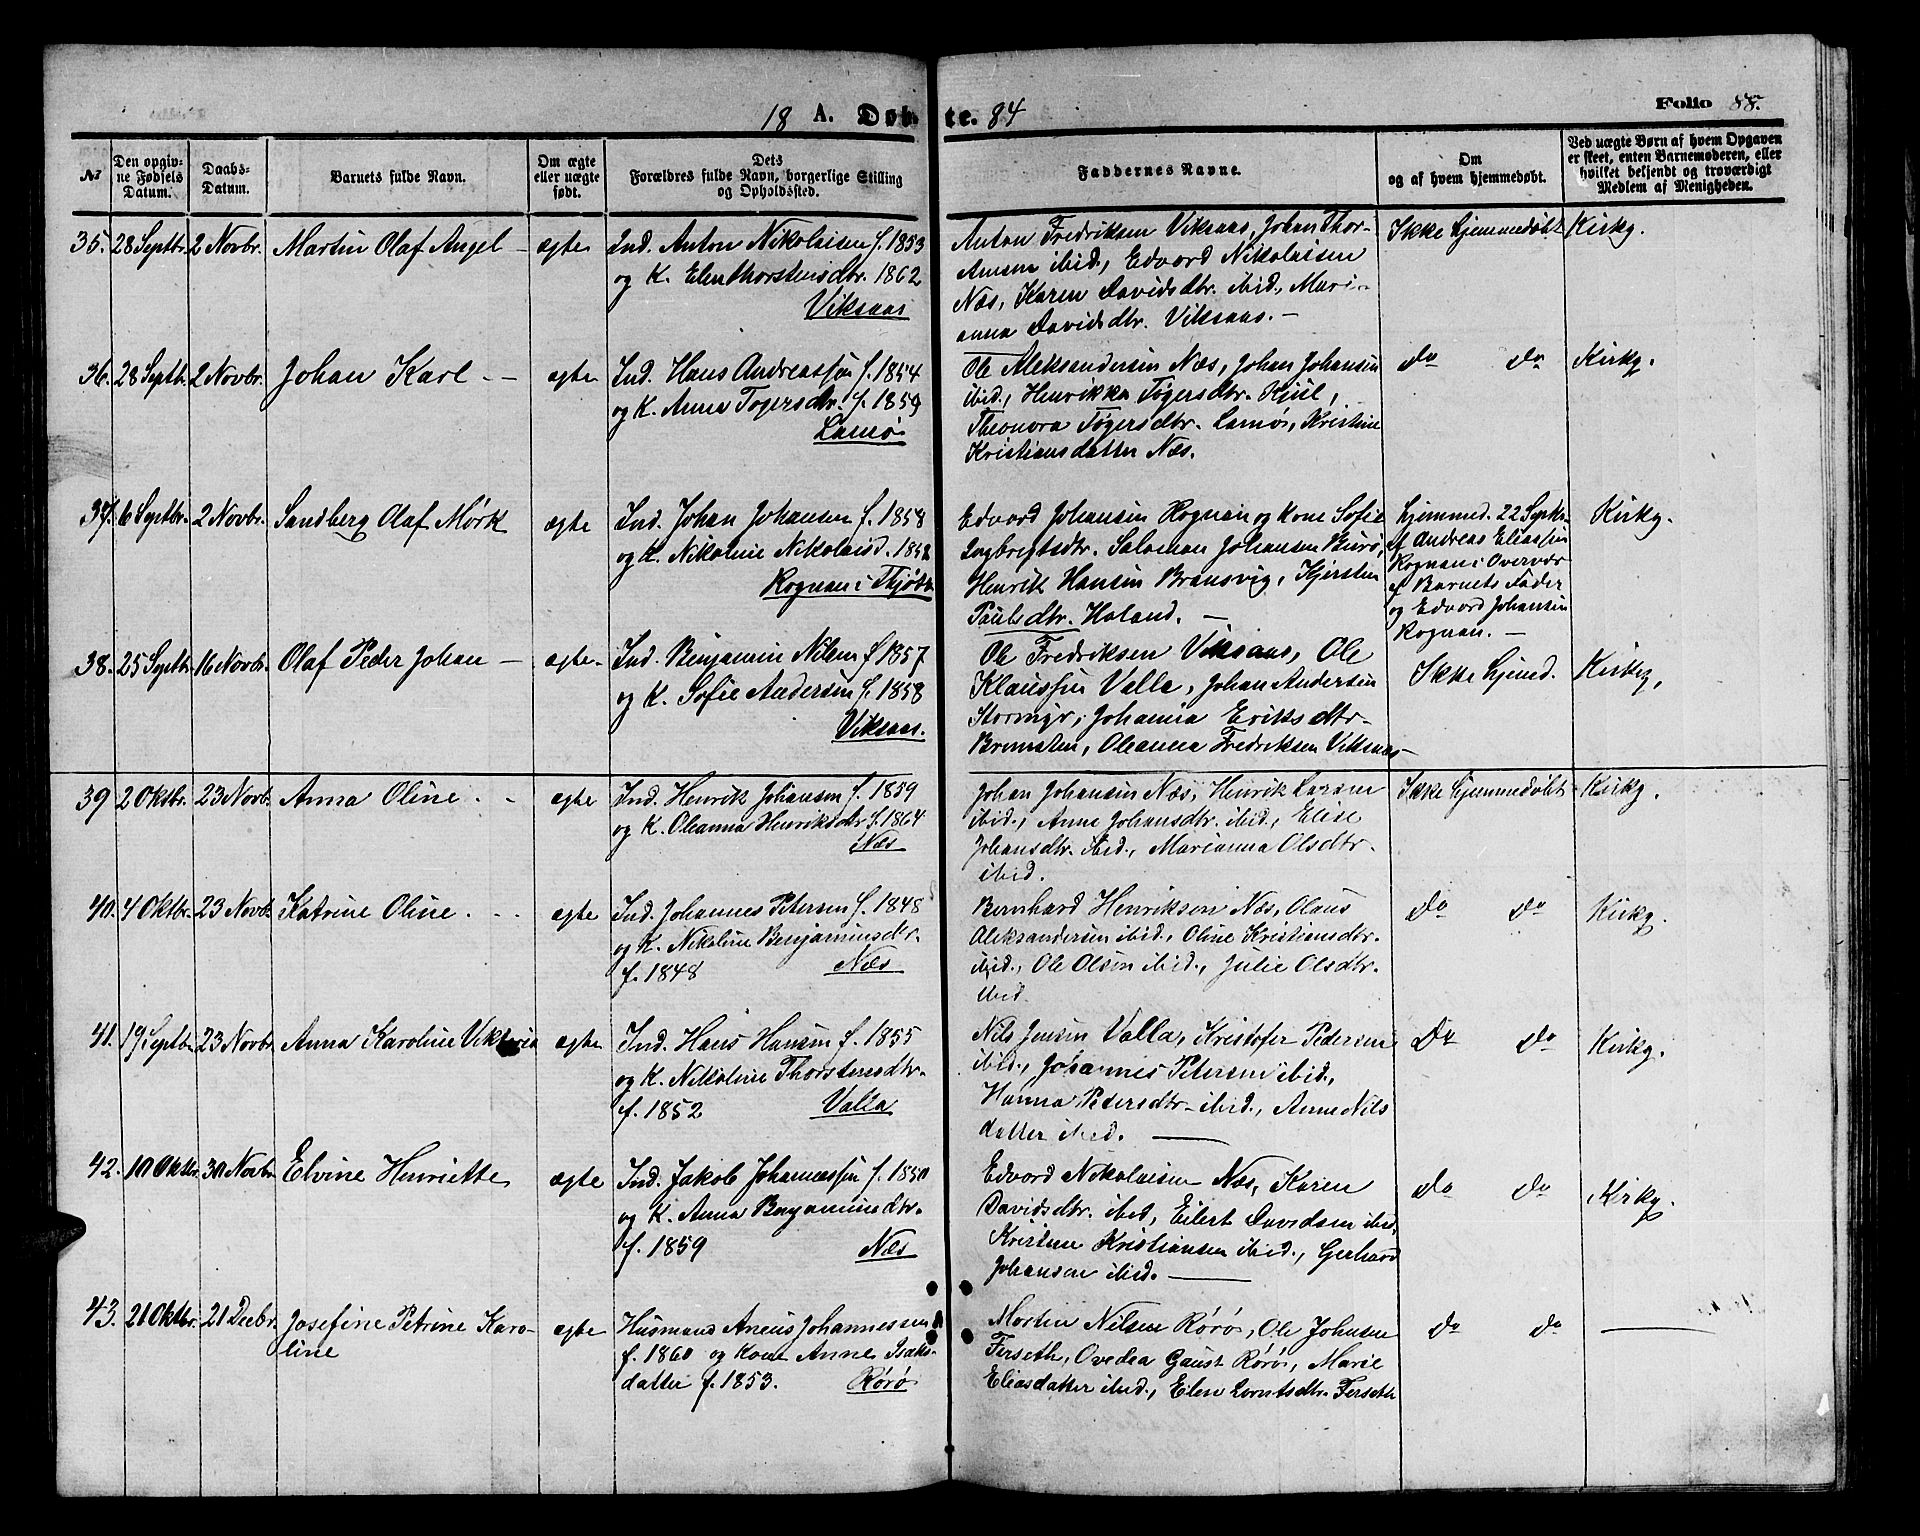 18 A. Døbte. 84
Folio 88.
No
Den opgiv-
ne Fødsels
Datum.
Daabs-
Datum.
Barnets fulde Navn.
Om ægte
eller uægte
født.
Dets
Forældres fulde Navn, borgerlige Stilling
og Opholdssted.
Faddernes Navne.
Om
og af hvem hjemmedøbt.
Ved uægte Børn af hvem Opgaven
er skeet, enten Barnemoderen, eller
hvilket bekjendt og troværdigt
Medlem af Menigheden.
35. 28 Septbr. 2 Novbr. Martin Olaf Angel - ægte
Ind. Anton Nikolaisen f. 1853
og K. Elen Thorstensdtr. 1862
Viksaas
Anton Fredriksen Viksaas, Johan Thor-
Amsen ibid., Edvard Nikolaisen
Næs, Karen Davidsdtr. ibid., Mari-
anna Davidsdtr. Viksaas. -
Ikke hjemmedøbt Kirkg.
36. 28 Septbr. 2 Novbr. Johan Karl - ægte
Ind. Hans Andreassen f. 1854
og K. Anna Tøgersdtr. f. 1859
Lamø
Ole Aleksandersen Næs, Johan Johansen
ibid., Henrikka Tøgersdtr. Hjul,
Theonora Tøgersdtr. Lamø, Kristine
Kristiansdatter Næs.
do do Kirkg.
37. 6 Septbr. 2 Novbr. Sandberg Olaf Mørk ægte
Ind. Johan Johansen f. 1858
og K. Nikoline Nikolaisd. 1858
Rognan i Thjøtta
Edvard Johansen Rognan og Kone Sofie
Ingbregtsdtr. Salomon Johansen Burø,
Henrik Hansen Brunsvig, Kjersten
Paulsdtr. Haland. -
hjemmed. 22 Septbr.
af Andreas Eliassen
Rognan i Overvær
af Barnets Fader
og Edvard Johansen
Rognan. -
Kirkg.
38. 25 Septbr. 16 Novbr. Olaf Peder Johan - ægte
Ind. Benjamin Nilsen f 1857
og K. Sofie Andersen f. 1858
Viksaas.
Ole Fredriksen Viksaas, Ole
Klaussen Valla, Johan Andersen
Stormyr, Johanna Eriksdtr.
Bremsten, Oleanna Fredriksen Viksaas
Ikke hjemd. Kirkg.
39 2 Oktbr. 23 Novbr. Anna Oline. - ægte
Ind. Henrik Johansen f. 1859
og K. Oleanna Henriksdtr f. 1864
Næs
Johan Johansen Næs, Henrik Larsen
ibid., Anne Johansdtr. ibid., Elise
Johansdtr. ibid., Marianna Olsdtr.
ibid.
Ikke hjemmedøbt Kirkg.
40. 4 Oktbr. 23 Novbr. Katrine Oline. ægte
Ind. Johannes Petersen f. 1848
og K. Nikoline Benjaminsdtr.
f. 1848 Næs
Bernhard Henriksen Næs, Olaus
Aleksandersen ibid., Oline Kristiansdtr.
ibid., Ole Olsen ibid., Julie Olsdtr.
ibid.
do do Kirkg.
41. 19 Septbr. 23 Novbr. Anna Karoline Viktoria ægte
Ind. Hans Hansen f. 1855
og K. Nikoline Thorstensdtr.
f. 1852 Valla
Nils Jensen Valla, Kristofer Pedersen
ibid., Johannes Petersen ibid.,
Hanna Pedersdtr ibid., Anne Nils
datter ibid.
Do do Kirkg.
42. 10 Oktbr. 30 Novbr. Elvine Henriette ægte
Ind. Jakob Johannessen f. 1850
og K. Anna Benjaminsdtr.
f. 1859 Næs
Edvard Nikolaisen Næs, Karen
Davidsdtr. ibid, Eilert Davidsen ibid,
Kristine Kristiansen ibid., Gerhard
Johansen ibid.
do do Kirkg.
43. 21 Oktbr. 21 Decbr. Josefine Petrine Karo-
line
ægte
Husmand Aneus Johannessen
f. 1860 og Kone Anne Isaks-
datter f. 1853. Rørø
Martin Nilsen Rørø, Ole Johnsen
Ferseth, Ovedea Gaust Rørø, Marie
Eliasdatter ibid., Elen Lorntsdtr. Ferseth
do do